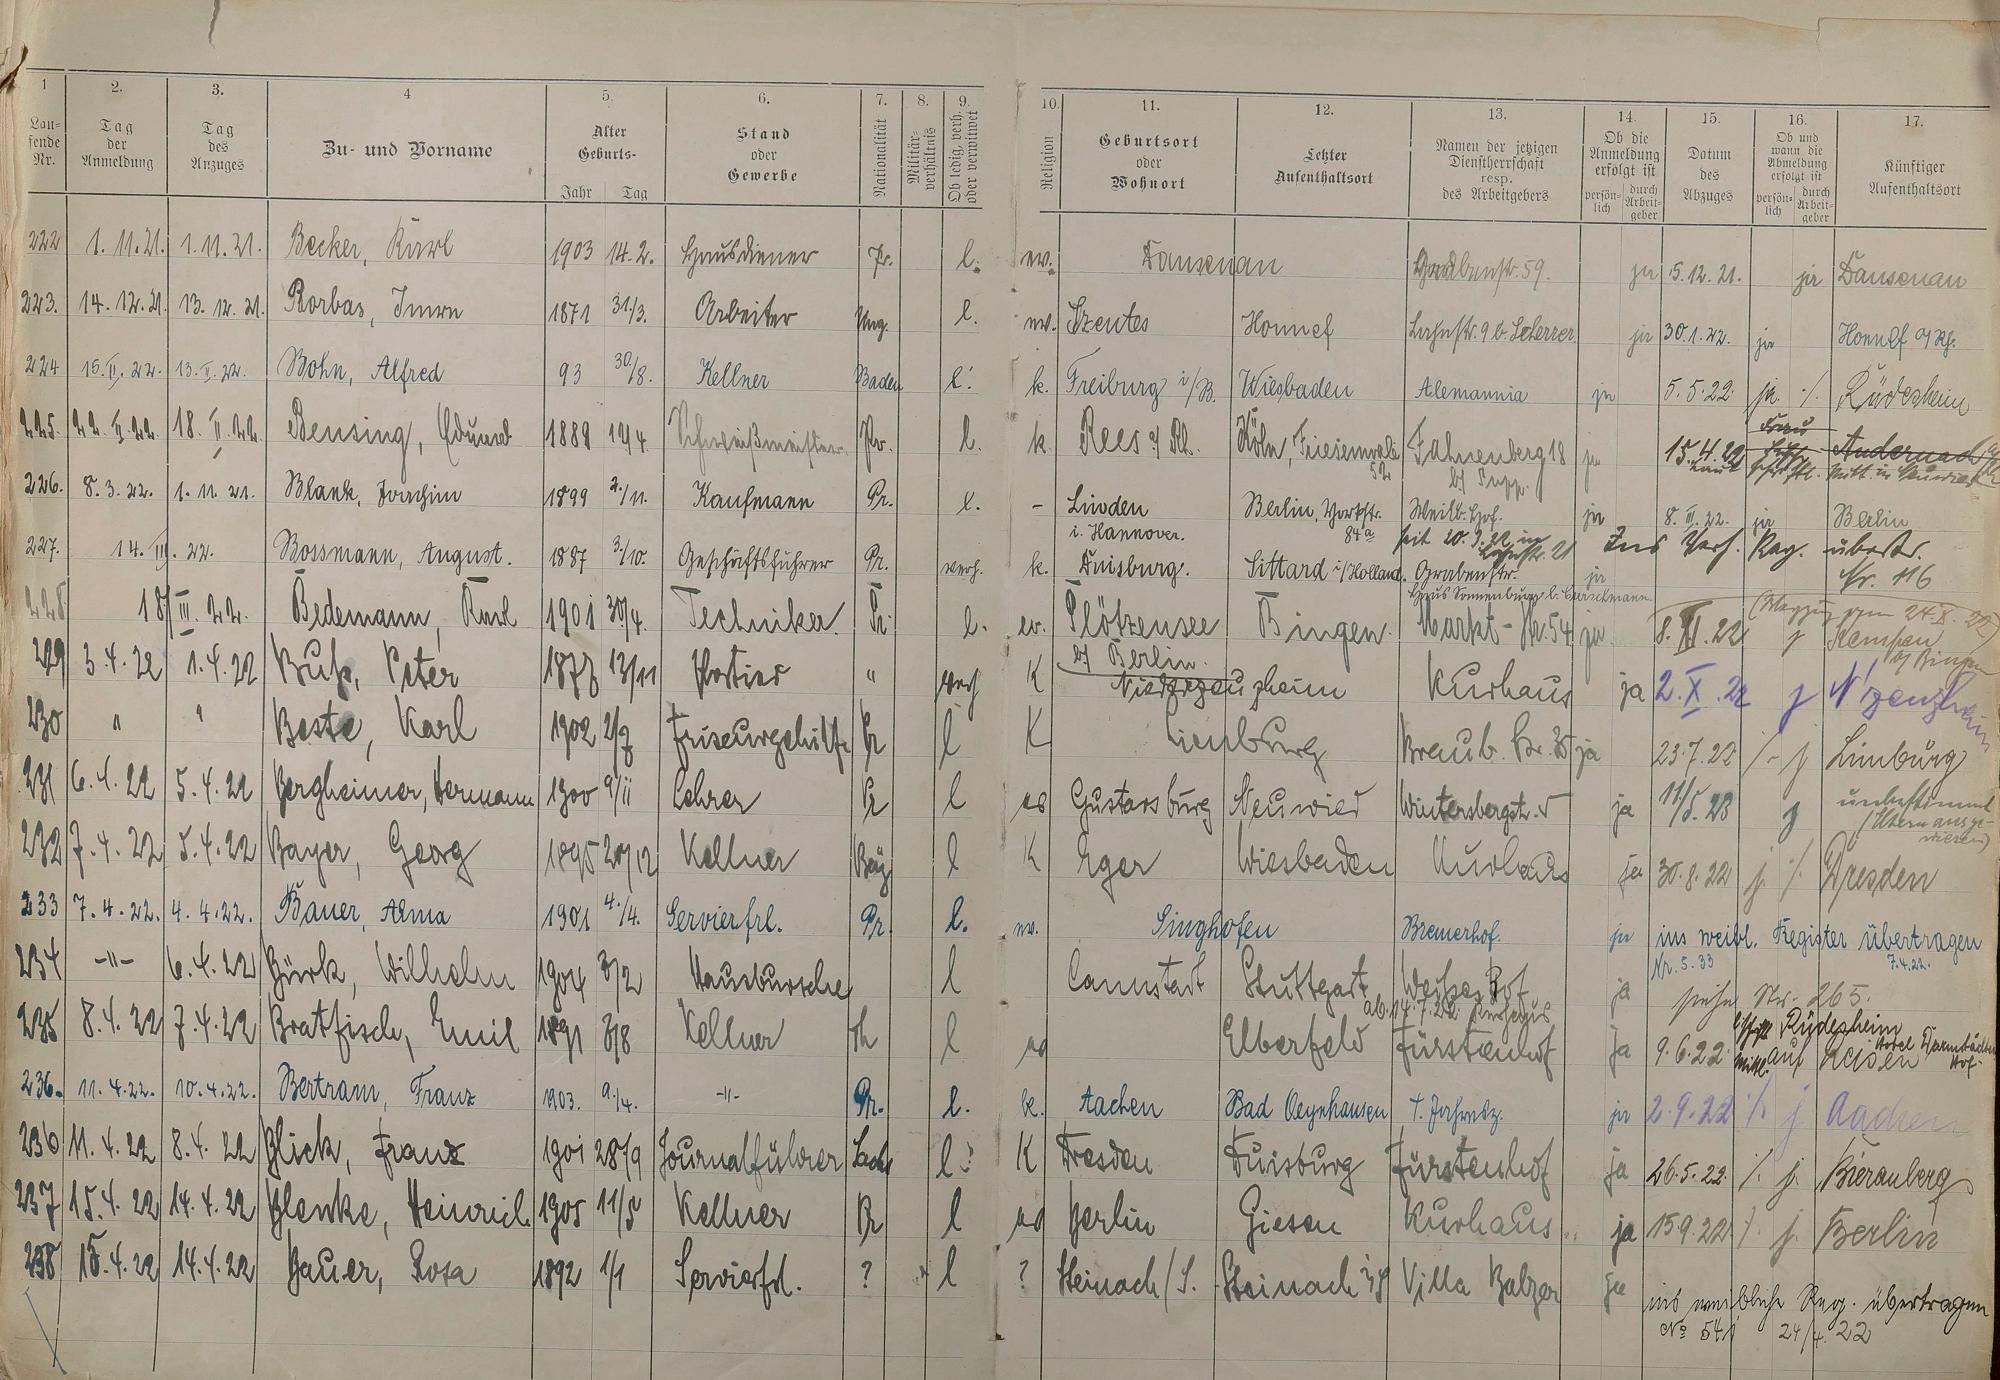 1 2. 3. 4 5. 6. 7. 8. 9. 10. 11. 12. 13. 14. 15. 16. 17.
Laufende Nr. Tag der Anmeldung Tag des Anzuges Zu- und Vorname Alter Geburts- Jahr Tag Stand oder Gewerbe Nationalität Militärverhältnis Ob ledig, verh. oder verwitwet Religion Geburtsort oder Wohnort Letzter Aufenthaltsort Namen der jetzigen Dienstherrschaft resp. des Arbeitgebers Ob die Anmeldung erfolgt ist persönlich durch Arbeitgeber Datum des Abzuges Ob und wann die Abmeldung erfolgt ist persönlich durch Arbeitgeber Künftiger Aufenthaltsort
222 1.11.21. 1.11.21. Becker, Karl 1903 14.2. Hausdiener Pr. l. ev. Dausenau 59. ja 5.12.21. ja Dausenau
223. 14.12.21. 13.12.21. 1871 31/3. Arbeiter Ung. l. ev. Szentes Honnef Lahnstr. 9 b. Scherrer ja 30.1.22. ja Honnef a/Rh.
224 15.II.22. 13.II.22. Bohn, Alfred 93 30/8. Kellner Baden l. k. Freiburg i/B. Wiesbaden Alemannia ja 5.5.22. ja ./. Rüdesheim
225. 22.II.22. 18.II.22. Bensing, Eduard 1888 Schweißmeister Pr. l. k. Rees a/Rh. Köln, Friesenwall 52 Fahnenberg 18 b/ Pupp. ja 15.4.22 Frau Andernach
laut schriftl. Mitt. in Neuwied
226. 8.3.22. 1.11.21. Blank, Joachim 1899 2./11. Kaufmann Pr. l. - Linden i. Hannover. Berlin, Yorkstr. 84a Weilb. Hof. ja 8.III.22. ja Berlin
seit 20.3.22 in Lahnstr. 21
227. 14.III.22. Bossmann, August. 1887 3./10. Geschäftsführer Pr. verh. k. Duisburg. Sittard i/Holland. Grabenstr. Haus Sonnenburg b. ja Ins Verh. Reg. übertr. Nr. 116
228 18/III.22. Bedemann, Karl 1901 30/4. Techniker. Pr l. ev. Plötzensee b/ Berlin. Bingen. Markt-Str. 54 ja 8.III.22 j Kempen b/ Bingen
(Wegzug zum 24.X.22)
229 3.4.22 1.4.22 Peter 1877 13/11 Portier " verh K Niederzeuzheim Kurhaus ja 2.X.22 j N'zeuzheim
230 " " Beste, Karl 1902 2/7 Friseurgehilfe Pr l K Limburg Braub. Str. 35 ja 23.7.22 /- j Limburg
231 6.4.22 5.4.22 Bergheimer, Hermann 1900 9/11 Lehrer Pr l ev Gustavsburg Neuwied Wintersbergstr. 5 ja 11/5.23 j unbestimmt
(Eltern ausgewiesen)
232 7.4.22 5.4.22 Bayer, Georg 1895 20/12 Kellner Bay l K Eger Wiesbaden Kurhaus ja 30.8.22 j. ./. Dresden
233 7.4.22. 4.4.22. Bauer, Alma 1901 4./4. Servierfrl. Pr. l. ev. Singhofen Bremerhof. ja ins weibl. Register übertragen
Nr. 533 7.4.22.
234 -"- 6.4.22 Bürk, Wilhelm 1904 3/2 Hausbursche l Cannstadt Stuttgart Weißes Roß ja siehe Nr. 265.
ab 14.7.22 Kurhaus
235 8.4.22 7.4.22 Bratfisch, Emil 1891 3/8 Kellner Th l ev Elberfeld Fürstenhof ja 9.6.22 Rüdesheim Hotel Darmstädter Hof
auf Reisen
236. 11.4.22. 10.4.22. Bertram, Franz 1903. 9./4. -"- Pr. l. k. Aachen Bad Oeynhausen ja 2.9.22 ./. j Aachen
236 11.4.22 8.4.22 Blick, Franz 1901 28/9 Journalführer Sachs l. K Dresden Duisburg Fürstenhof ja 26.5.22. ./. j.
237 15.4.22 14.4.22 Blenke, Heinrich 1905 11/5 Kellner Pr l ev Berlin Giesen Kurhaus ja 15.9.22 ./. j. Berlin
238 15.4.22 14.4.22 Bauer, Rosa 1892 1/1 Servierfrl. ? l ? Steinach/S. Steinach Villa Balzer ja ins weibliche Reg. übertragen
No 541 24/4.22